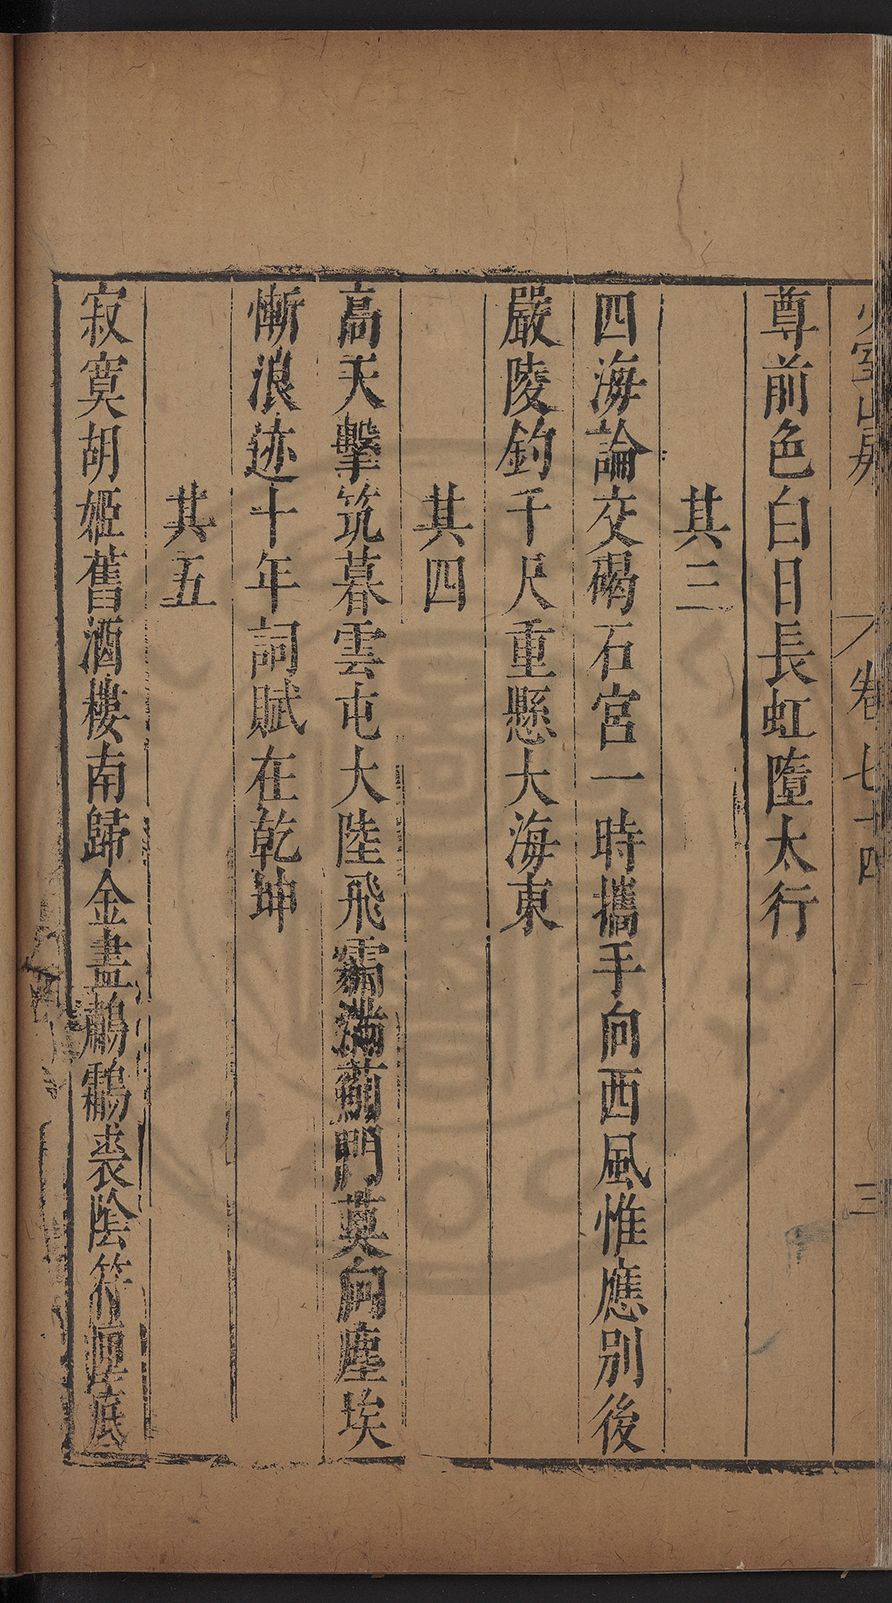 少室山房 卷七十四 三
尊前色白日長虹墮太行
其三
四海論交碣石宮一時攜手向西風惟應別後
嚴陵釣千尺重懸大海東
其四
高天擊筑暮雲屯大陸飛霜滿薊門莫向塵埃
慚浪迹十年詞賦在乾坤
其五
寂寞胡姬舊酒樓南歸金盡鷫鸘裘陰符匣底